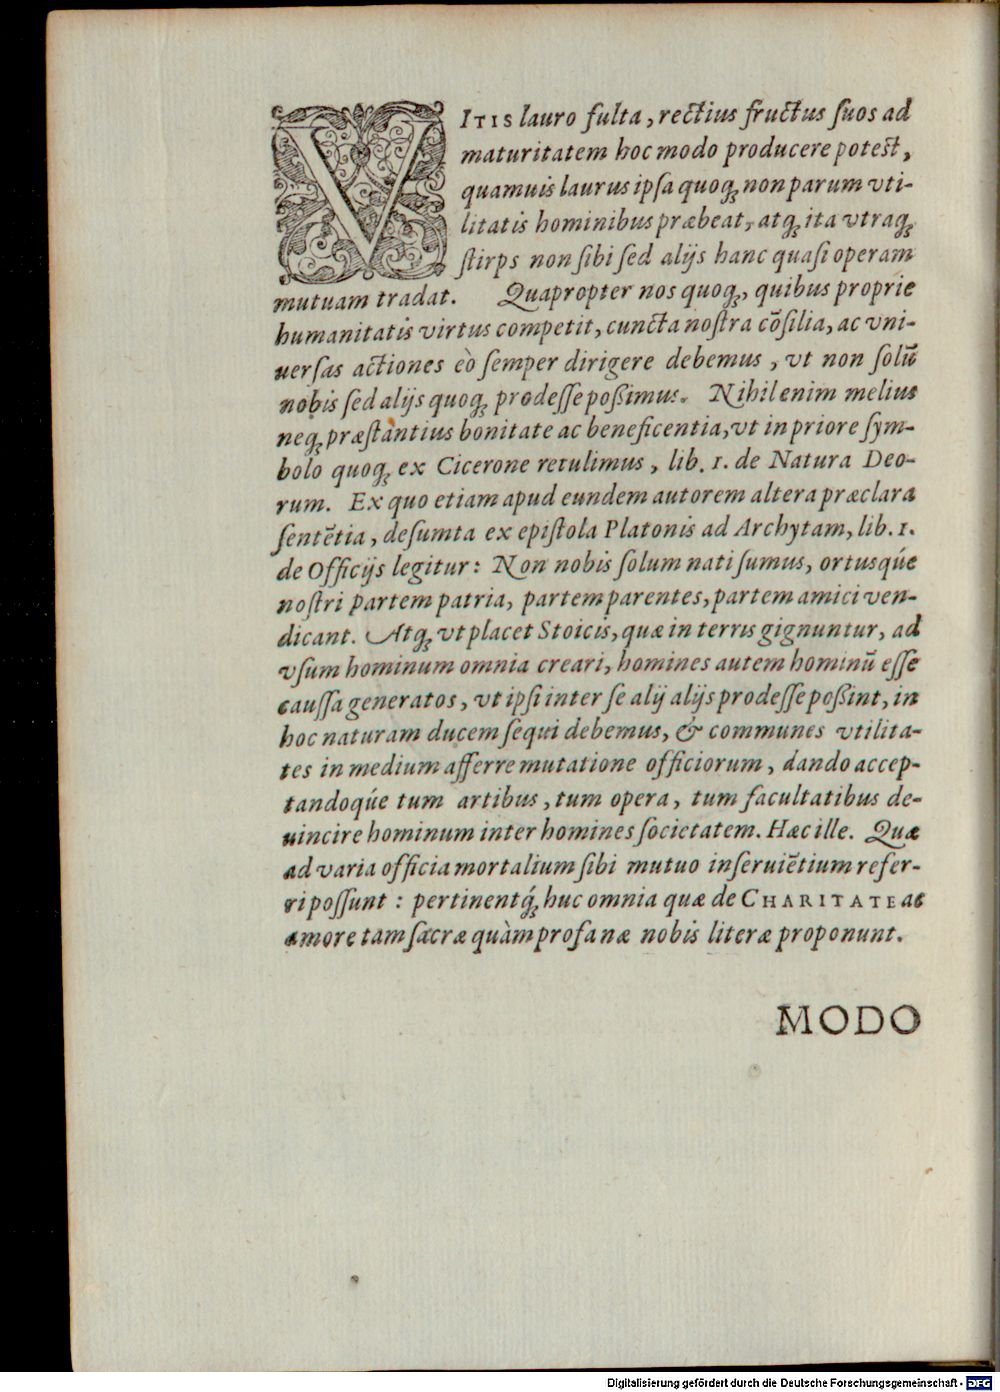 VITIS lauro fulta, rectius fructus ſuos ad
maturitatem hoc modo producere poteſt,
quamuis laurus ipſa quoq; non parum vti-
litatis hominibus præbeat, atq; ita vtraq;
ſtirps non ſibi ſed alijs hanc quaſi operam
mutuam tradat. Quapropter nos quoq;, quibus proprie
humanitatis virtus competit, cuncta noſtra cõſilia, ac vni-
uerſas actiones eò ſemper dirigere debemus, vt non ſolũ
nobis ſed alijs quoq; prodeſſe poßimus. Nihil enim melius
neq; præſtantius bonitate ac beneficentia, vt in priore ſym-
bolo quoq; ex Cicerone retulimus, lib. 1. de Natura Deo-
rum. Ex quo etiam apud eundem autorem altera præclara
ſentẽtia, deſumta ex epiſtola Platonis ad Archytam, lib. 1.
de Officijs legitur: Non nobis ſolum nati ſumus, ortusqúe
noſtri partem patria, partem parentes, partem amici ven-
dicant. Atq; vt placet Stoicis, quæ in terris gignuntur, ad
vſum hominum omnia creari, homines autem hominũ eſſe
cauſſa generatos, vt ipſi inter ſe alij alijs prodeſſe poßint, in
hoc naturam ducem ſequi debemus, & communes vtilita-
tes in medium afferre mutatione officiorum, dando accep-
tandoqúe tum artibus, tum opera, tum facultatibus de-
uincire hominum inter homines ſocietatem. Hæc ille. Quæ
ad varia officia mortalium ſibi mutuo inſeruiẽtium refer-
ri poſſunt: pertinentq́; huc omnia quæ de CHARITATE ac
amore tam ſacræ quàm profanæ nobis literæ proponunt.
MODO
Digitalisierung gefördert durch die Deutsche Forschungsgemeinschaft - DFG